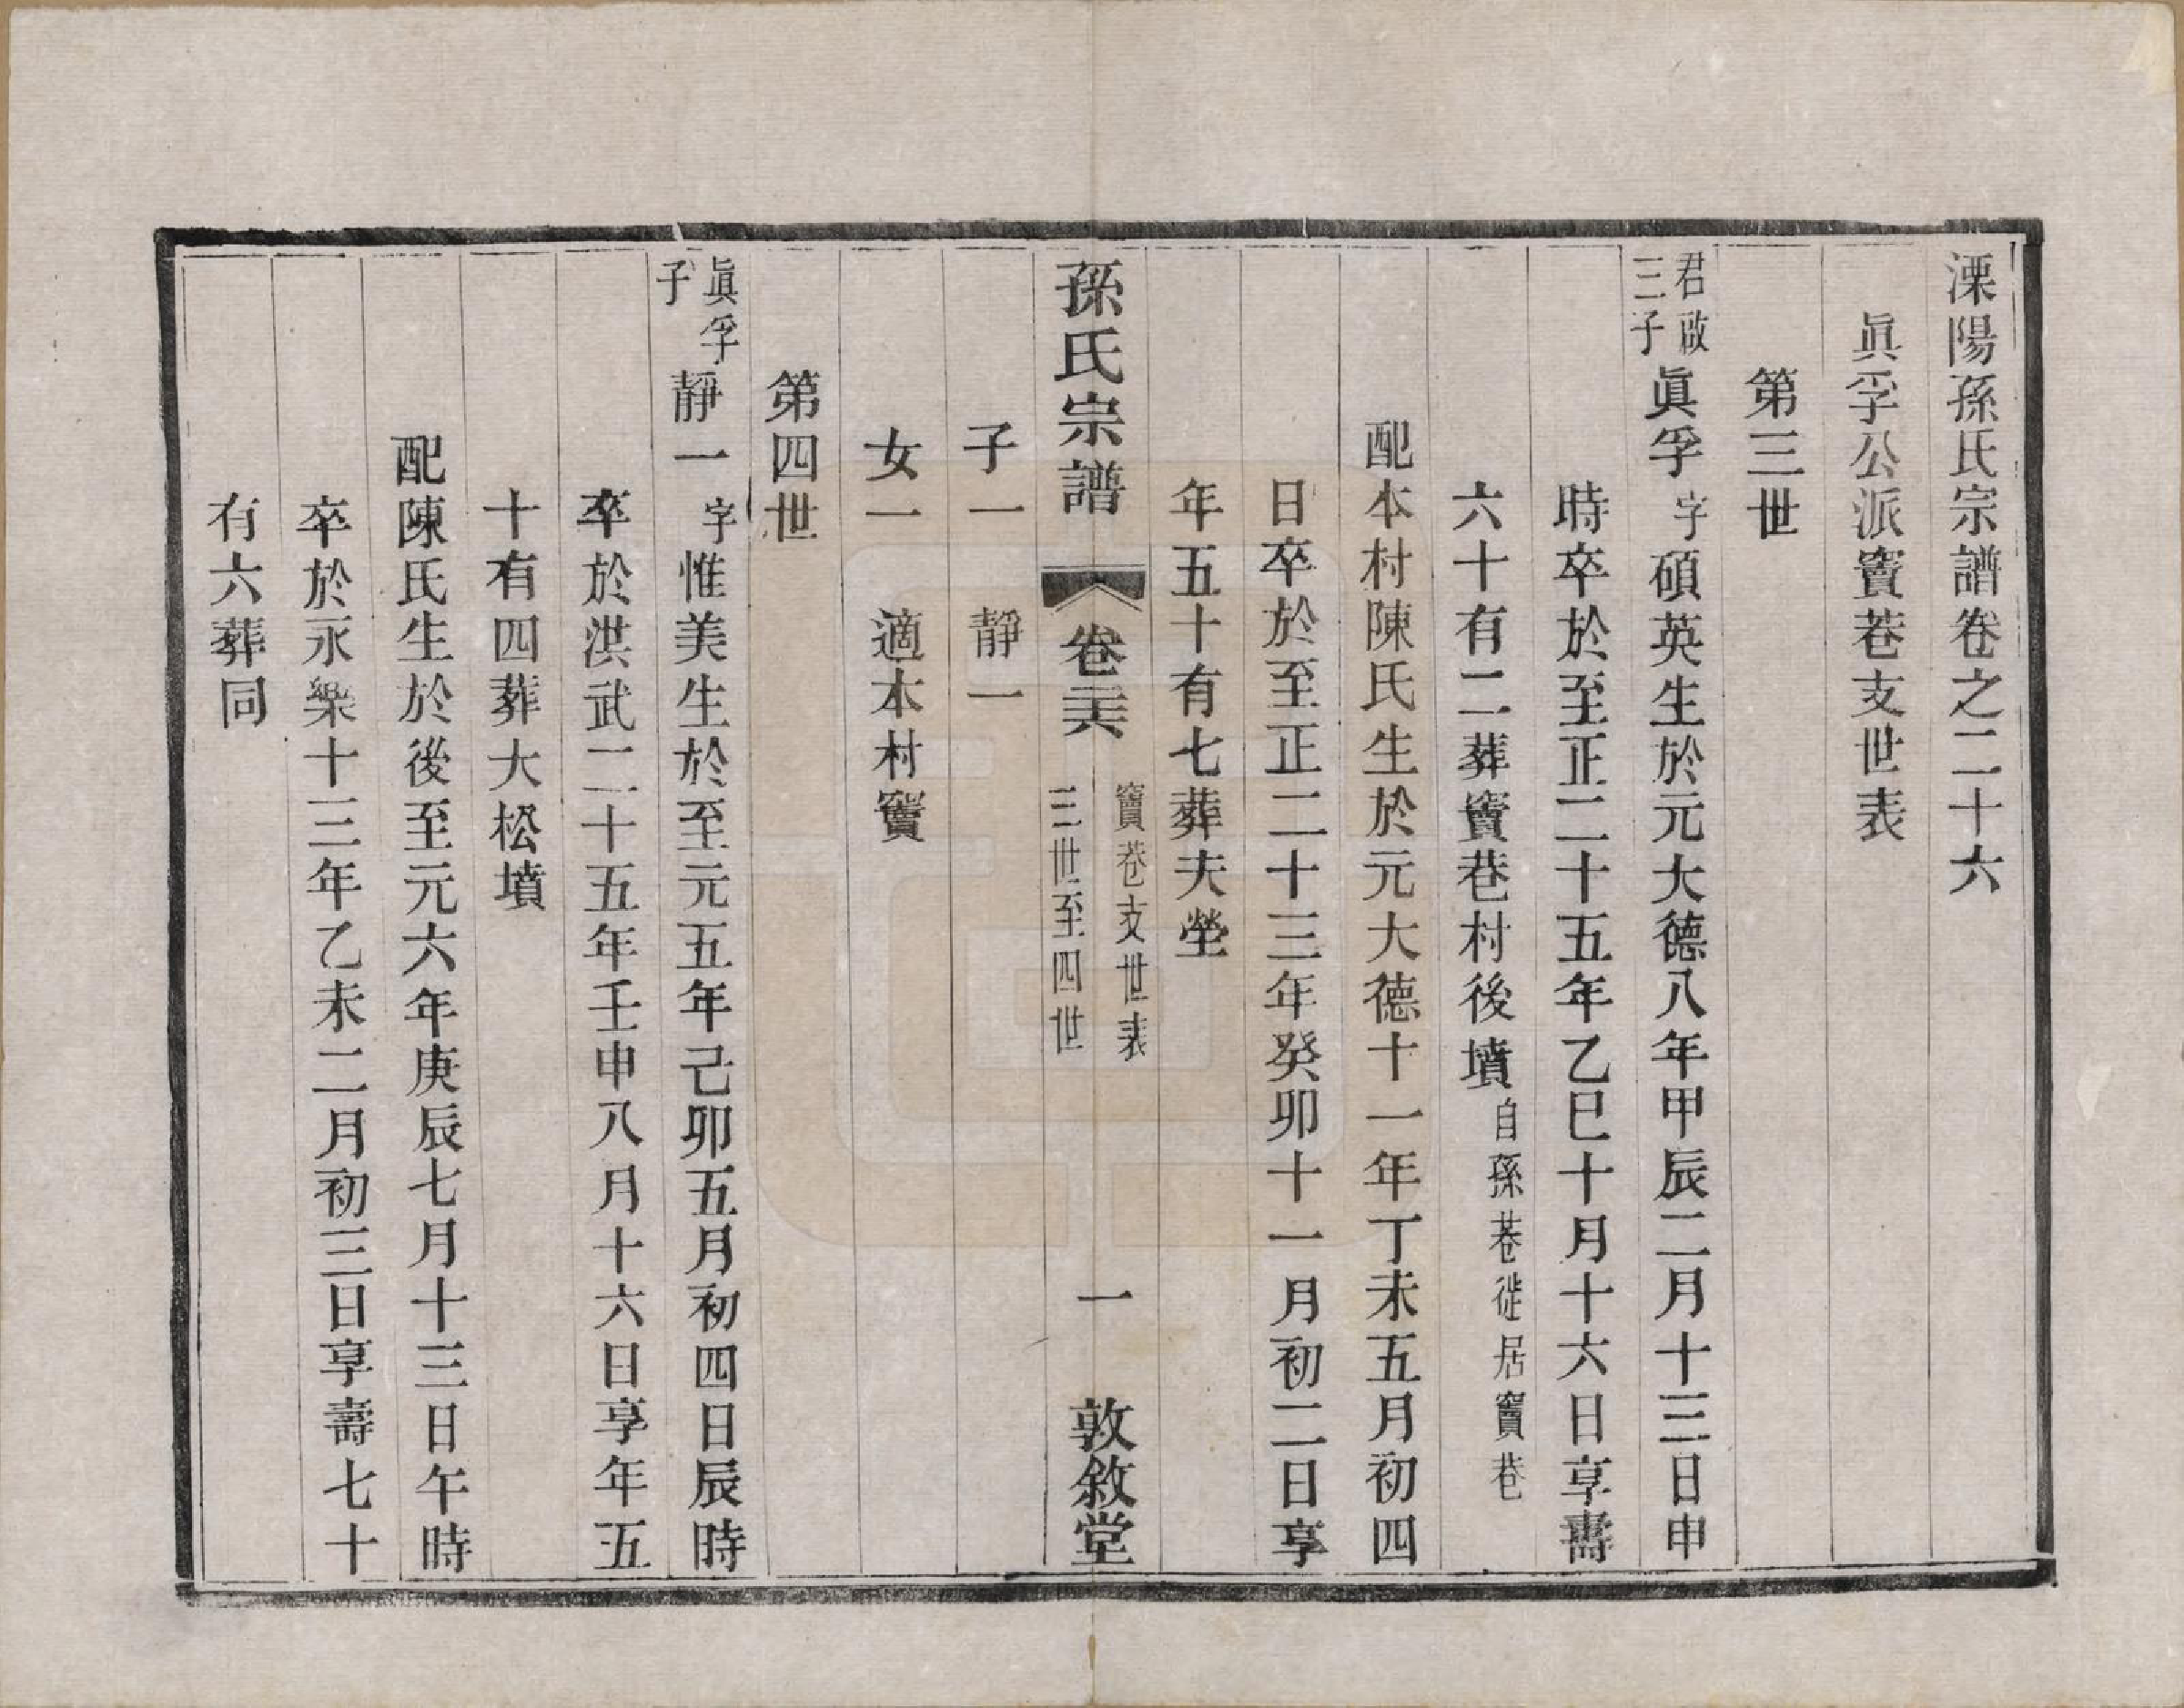 溧陽孫氏宗譜卷之二十六
眞孚公派竇巷支世表
第三世
君啟
三子
眞孚 字碩英生於元大德八年甲辰二月十三日申
時卒於至正二十五年乙巳十月十六日享壽
六十有二葬竇巷村後墳自孫巷徙居竇巷
配本村陳氏生於元大德十一年丁未五月初四
日卒於至正二十三年癸卯十一月初二日享
年五十有七葬夫塋
孫氏宗譜 卷二十六 竇巷支世表
三世至四世 一 敦敘堂
子一 靜一
女一 適本村竇
第四世
眞孚
子
靜一 字惟美生於至元五年己卯五月初四日辰時
卒於洪武二十五年壬申八月十六日享年五
十有四葬大松墳
配陳氏生於後至元六年庚辰七月十三日午時
卒於永樂十三年乙未二月初三日享壽七十
有六葬同